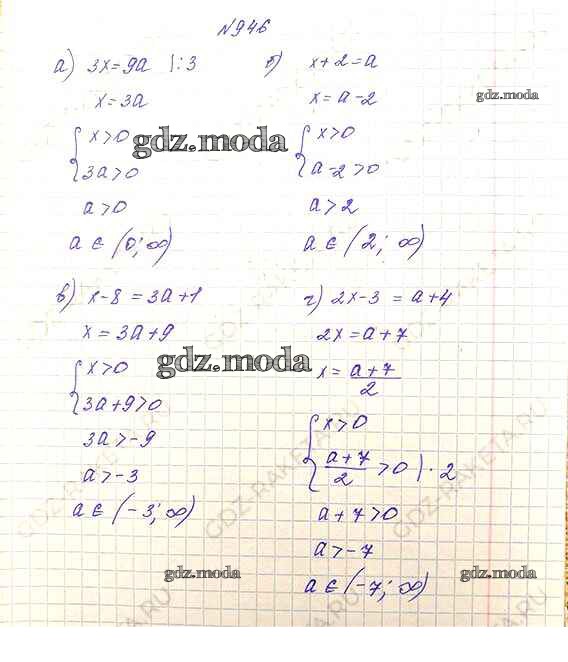 №946
а) 3x=9a |:3
x=3a
{x>0
3a>0
a>0
a ∈ (0; ∞)
б) x+2=a
x=a-2
{x>0
a-2>0
a>2
a ∈ (2; ∞)
в) x-8=3a+1
x=3a+9
{x>0
3a+9>0
3a>-9
a>-3
a ∈ (-3; ∞)
г) 2x-3=a+4
2x=a+7
x=a+7/2
{x>0
a+7/2>0 |·2
a+7>0
a>-7
a ∈ (-7; ∞)
gdz.moda
gdz.moda
gdz.moda
gdz.moda
gdz.moda
GDZ-RAKETA.RU
GDZ-RAKETA.RU
GDZ-RAKETA.RU